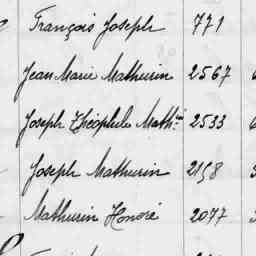 François Joseph 771
Jean Marie Mathurin 2567
Joseph Théophile Math.in 2533
Joseph Mathurin 2158
Mathurin Honoré 2077